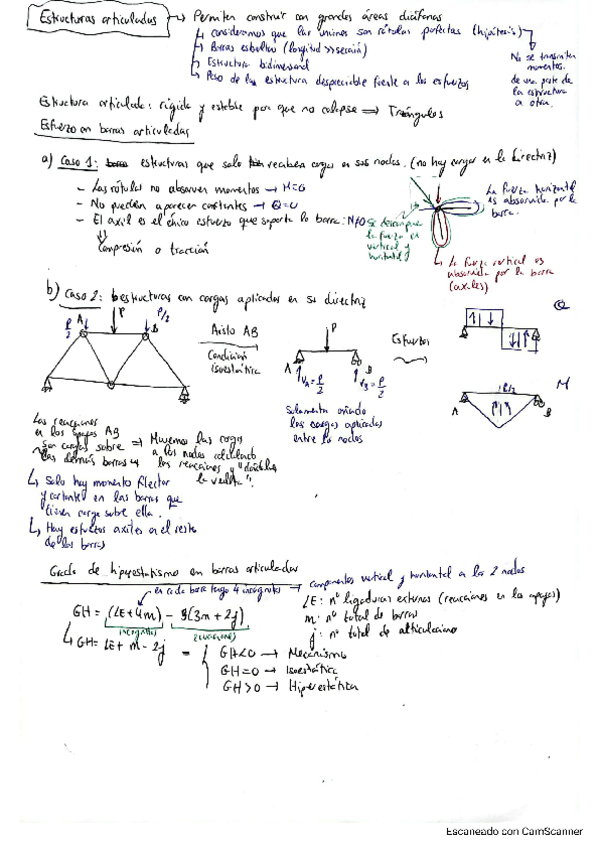 Estructuras articuladas → Permiten construir con grandes áreas diáfanas
↳ consideramos que las uniones son rótulas perfectas (hipótesis)
No se transmiten momentos de una parte de la estructura a otra.
↳ Barras esbeltas (longitud >> sección)
↳ Estructura bidimensional
↳ Peso de las estructura despreciable frente a los esfuerzos
Estructura articulada: rígida y estable para que no colapse ⟹ Triángulos
Esfuerzo en barras articuladas
a) Caso 1: estructuras que solo reciben cargas en sus nodos. (no hay cargas en la directriz)
- Las rótulas no absorven momentos → M=0
- No pueden aparecer cortantes → Q=0
- El axil es el único esfuerzo que soporta la barra: N≠0
Compresión o tracción
Se descompone la fuerza en vertical y horizontal
La fuerza horizontal es absorvida por la barra.
La fuerza vertical es absorvida por la barra (axiles)
b) Caso 2: estructuras con cargas aplicadas en su directriz
P/2 A P P/2 B
Aislo AB
Condición isostática
P
A B
V_A = P/2 V_B = P/2
Esfuerzos
Q
M
A B
Solamente añado
las cargas aplicadas
entre los nodos
Las reacciones
en los apoyos AB
son cargas sobre
las demás barras
⟹ Movemos las cargas
a los nodos calculando
las reacciones y "dándoles
la vuelta".
↳ Solo hay momento flector
y cortante en las barras que
tienen carga sobre ella.
↳ Hay esfuerzos axiles en el resto
de las barras
Grado de hiperestatismo en barras articuladas
en cada barra tengo 4 incógnitas → componentes vertical y horizontal a los 2 nodos
GH = (LE+4m) - (3m+2j)
incógnitas ecuaciones
LE: nº ligaduras externas (reacciones en los apoyos)
m: nº total de barras
j: nº total de articulaciones
↳ GH = LE + m - 2j =
GH<0 → Mecanismo
GH=0 → Isostática
GH>0 → Hiperestática
Escaneado con CamScanner